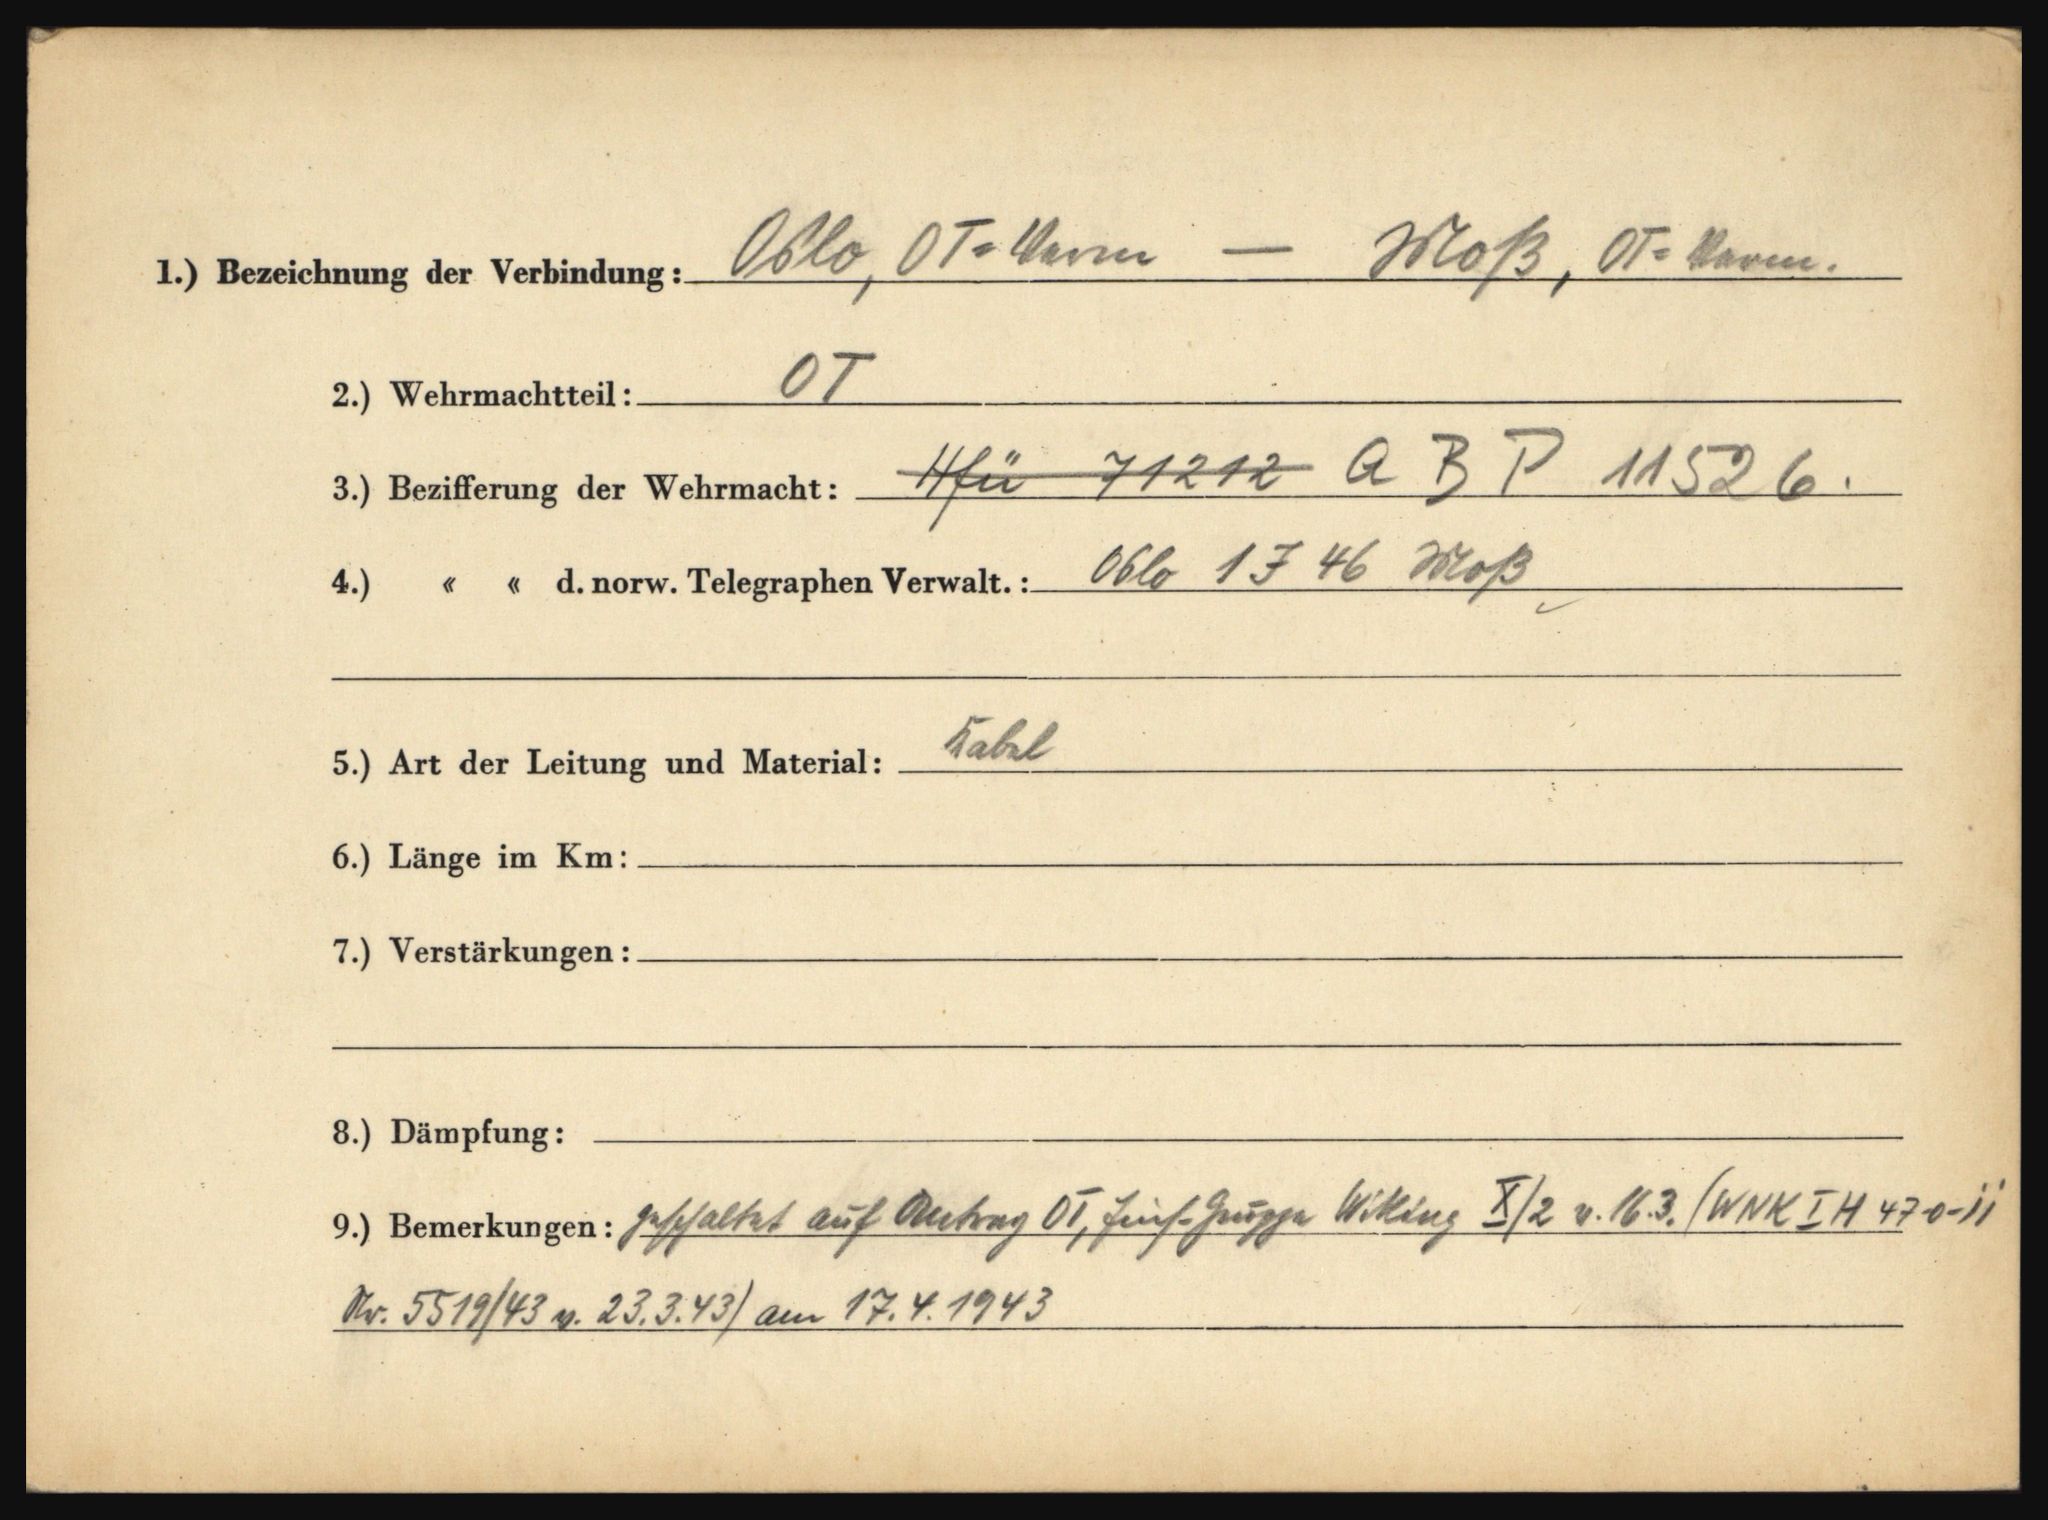 1.) Bezeichnung der Verbindung: Oslo, OT= Verm — Moß, OT= Verm.
2.) Wehrmachtteil: OT
3.) Bezifferung der Wehrmacht: Hfü 71212 A B P 11526.
4.) « « d. norw. Telegraphen Verwalt.: Oslo 1 F 46 Moß
5.) Art der Leitung und Material: Kabel
6.) Länge im Km:
7.) Verstärkungen:
8.) Dämpfung:
9.) Bemerkungen: geschaltet auf Antrag OT, Eins-Gruppe Wiking X/2 v. 16.3. (WNK I H 47-0-11
Nr. 5519/43 v. 23.3.43) am 17.4.1943